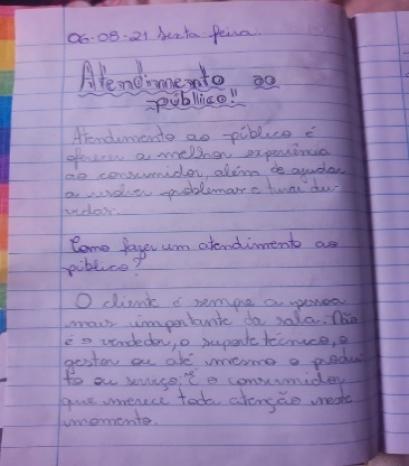 06-08-21 Sexta feira.
Atendimento ao
público!!
Atendimento ao público é
oferecer a melhor experiência
ao consumidor, além de ajudar
a resolver problemas e tirar dú-
vidas.
Como fazer um atendimento ao
público?
O cliente é sempre a pessoa
mais importante da sala. Não
é o vendedor, o suporte técnico, o
gestor ou até mesmo o produ
to ou serviço. É o consumidor
que merece toda atenção neste
momento.